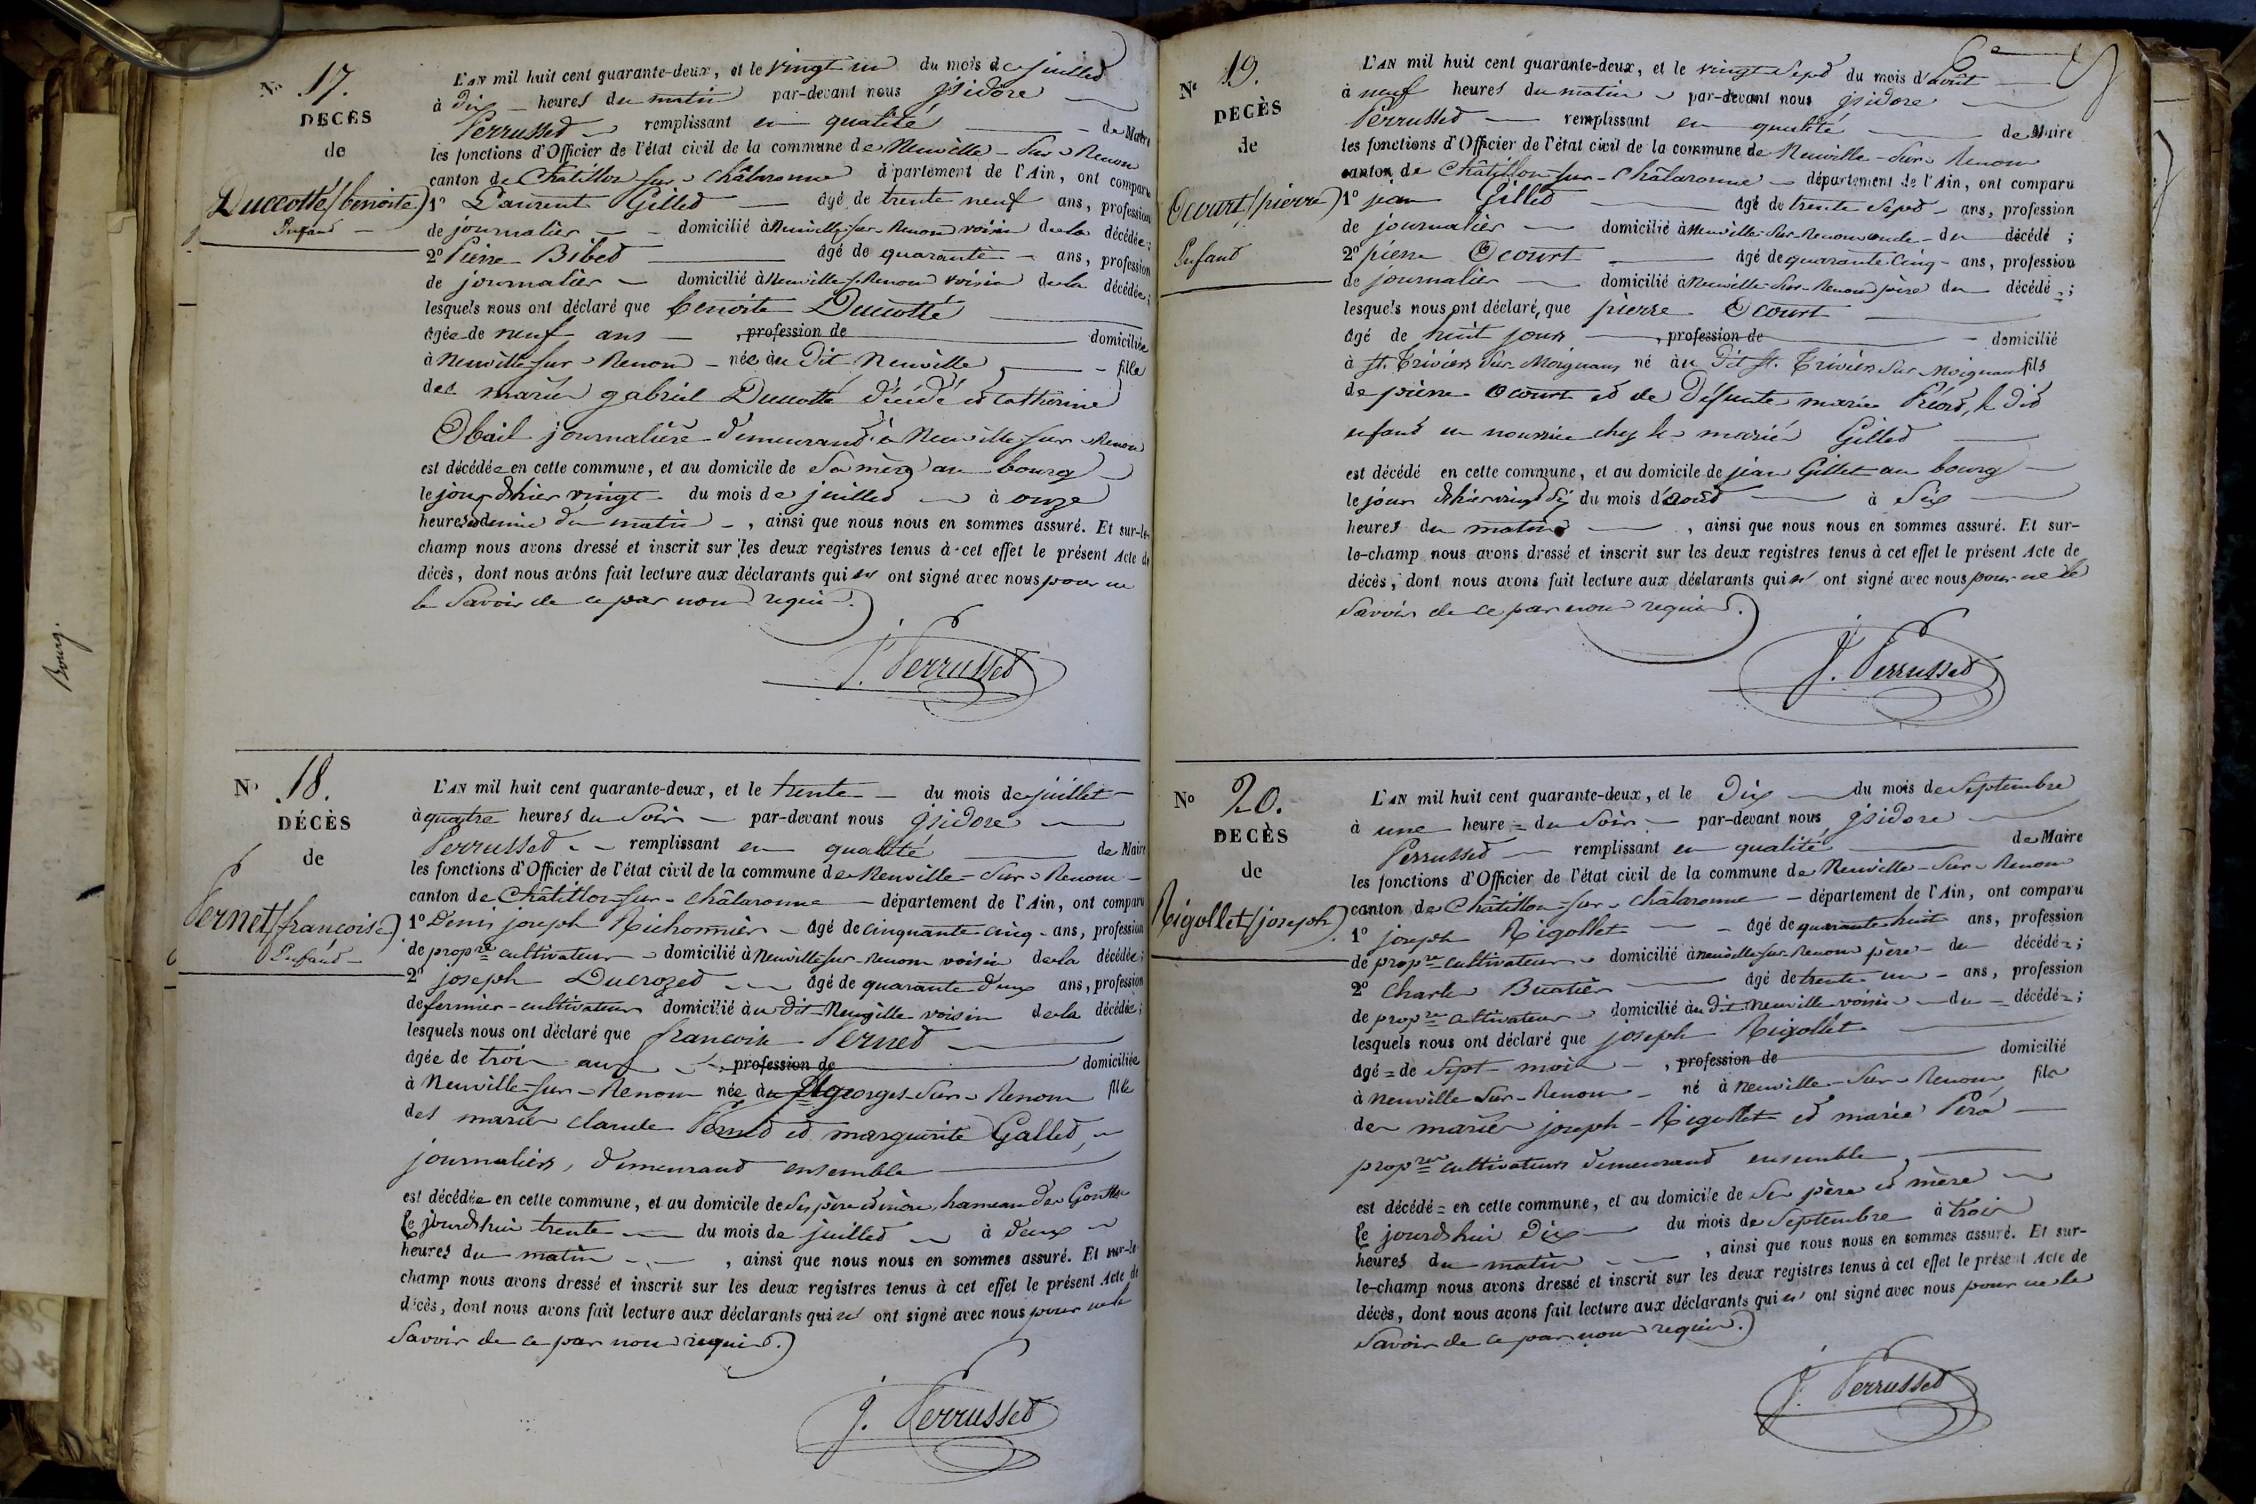 Bourg.
N° 17.
DÉCÈS
de
Duccotté (benoite)
Enfant
L'AN mil huit cent quarante-deux, et le vingt un du mois de juillet
à dix heures du matin par-devant nous jsidore
Perrusset remplissant en qualité de Maire
les fonctions d'Officier de l'état civil de la commune de Neuville-sur-Renom
canton de Châtillon sur-châlaronne département de l'Ain, ont comparu
1° Laurent Gillet âgé de trente neuf ans, profession
de journalier domicilié à Neuville-sur-Renom voisin de la décédée;
2° Pierre Bibet âgé de quarante ans, profession
de journalier domicilié à Neuville s. Renom voisin de la décédée;
lesquels nous ont déclaré que benoite Duccotté
âgée de neuf ans , profession de domiciliée
à Neuville-sur-Renom née au dit Neuville fille
des mariés gabriel Duccotté décédé et catherine
Obail journalière demeurant à Neuville-sur-Renom
est décédée en cette commune, et au domicile de sa mère au bourg
le jour d'hier vingt du mois de juillet à onze
heures et demie du matin , ainsi que nous nous en sommes assuré. Et sur-le-
champ nous avons dressé et inscrit sur les deux registres tenus à cet effet le présent Acte de
décès, dont nous avons fait lecture aux déclarants qui n' ont signé avec nous pour ne
le savoir de ce par nous requis.
J. Perrusset
N° 18.
DÉCÈS
de
Pernet (françoise)
Enfant
L'AN mil huit cent quarante-deux, et le trente du mois de juillet
à quatre heures du soir par-devant nous jsidore
Perrusset remplissant en qualité de Maire
les fonctions d'Officier de l'état civil de la commune de Neuville-sur-Renom
canton de Châtillon-sur-châlaronne département de l'Ain, ont comparu
1° Denis joseph Michonnier âgé de cinquante cinq ans, profession
de propre cultivateur domicilié à Neuville-sur-Renom voisin de la décédée;
2° joseph Ducrozet âgé de quarante deux ans, profession
de fermier-cultivateur domicilié au dit Neuville voisin de la décédée;
lesquels nous ont déclaré que françoise Pernet
âgée de trois ans , profession de domiciliée
à Neuville-sur-Renom née à St georges-sur-Renom fille
des mariés claude Pernet et marguerite Gallet,
journaliers, demeurant ensemble
est décédée en cette commune, et au domicile de ses père et mère, hameau des Gouttes
le jourdhui trente du mois de juillet à deux
heures du matin , ainsi que nous nous en sommes assuré. Et sur-le-
champ nous avons dressé et inscrit sur les deux registres tenus à cet effet le présent Acte de
décès, dont nous avons fait lecture aux déclarants qui n' ont signé avec nous pour ne le
savoir de ce par nous requis.
J. Perrusset
N° 19.
DÉCÈS
de
Ocourt (pierre)
Enfant
L'AN mil huit cent quarante-deux, et le vingt sept du mois d'août
à neuf heures du matin par-devant nous jsidore
Perrusset remplissant en qualité de Maire
les fonctions d'Officier de l'état civil de la commune de Neuville-sur-Renom
canton de Châtillon-sur-châlaronne département de l'Ain, ont comparu
1° jean Gillet âgé de trente sept ans, profession
de journalier domicilié à Neuville-sur-Renom du décédé ;
2° pierre Ocourt âgé de quarante cinq ans, profession
de journalier domicilié à Neuville-sur-Renom père du décédé ;
lesquels nous ont déclaré que pierre Ocourt
âgé de huit jours , profession de domicilié
à St. Triviers sur Moignans né au dit St. Triviers sur Moignans fils
de pierre Ocourt et de défunte marie , le dit
enfant en nourrice chez les mariés Gillet
est décédé en cette commune, et au domicile de jean Gillet au bourg
le jour d'hier vingt six du mois d'août à six
heures du matin , ainsi que nous nous en sommes assuré. Et sur-
le-champ nous avons dressé et inscrit sur les deux registres tenus à cet effet le présent Acte de
décès, dont nous avons fait lecture aux déclarants qui n' ont signé avec nous pour ne le
savoir de ce par nous requis.
J. Perrusset
N° 20.
DÉCÈS
de
Rigollet (joseph)
L'AN mil huit cent quarante-deux, et le dix du mois de Septembre
à une heure du soir par-devant nous jsidore
Perrusset remplissant en qualité de Maire
les fonctions d'Officier de l'état civil de la commune de Neuville-sur-Renom
canton de Châtillon-sur-châlaronne département de l'Ain, ont comparu
1° joseph Rigollet âgé de quarante huit ans, profession
de propre cultivateur domicilié à Neuville-sur-Renom père du décédé ;
2° Charles Buatier âgé de trente un ans, profession
de propre cultivateur domicilié au dit Neuville voisin du décédé ;
lesquels nous ont déclaré que joseph Rigollet
âgé de sept mois , profession de domicilié
à Neuville-sur-Renom né à Neuville-sur-Renom fils
des mariés joseph Rigollet et marie Péra
propres cultivateurs demeurant ensemble
est décédé en cette commune, et au domicile de ses père et mère
le jourdhui dix du mois de Septembre à trois
heures du matin , ainsi que nous nous en sommes assuré. Et sur-
le-champ nous avons dressé et inscrit sur les deux registres tenus à cet effet le présent Acte de
décès, dont nous avons fait lecture aux déclarants qui n' ont signé avec nous pour ne le
savoir de ce par nous requis.
J. Perrusset